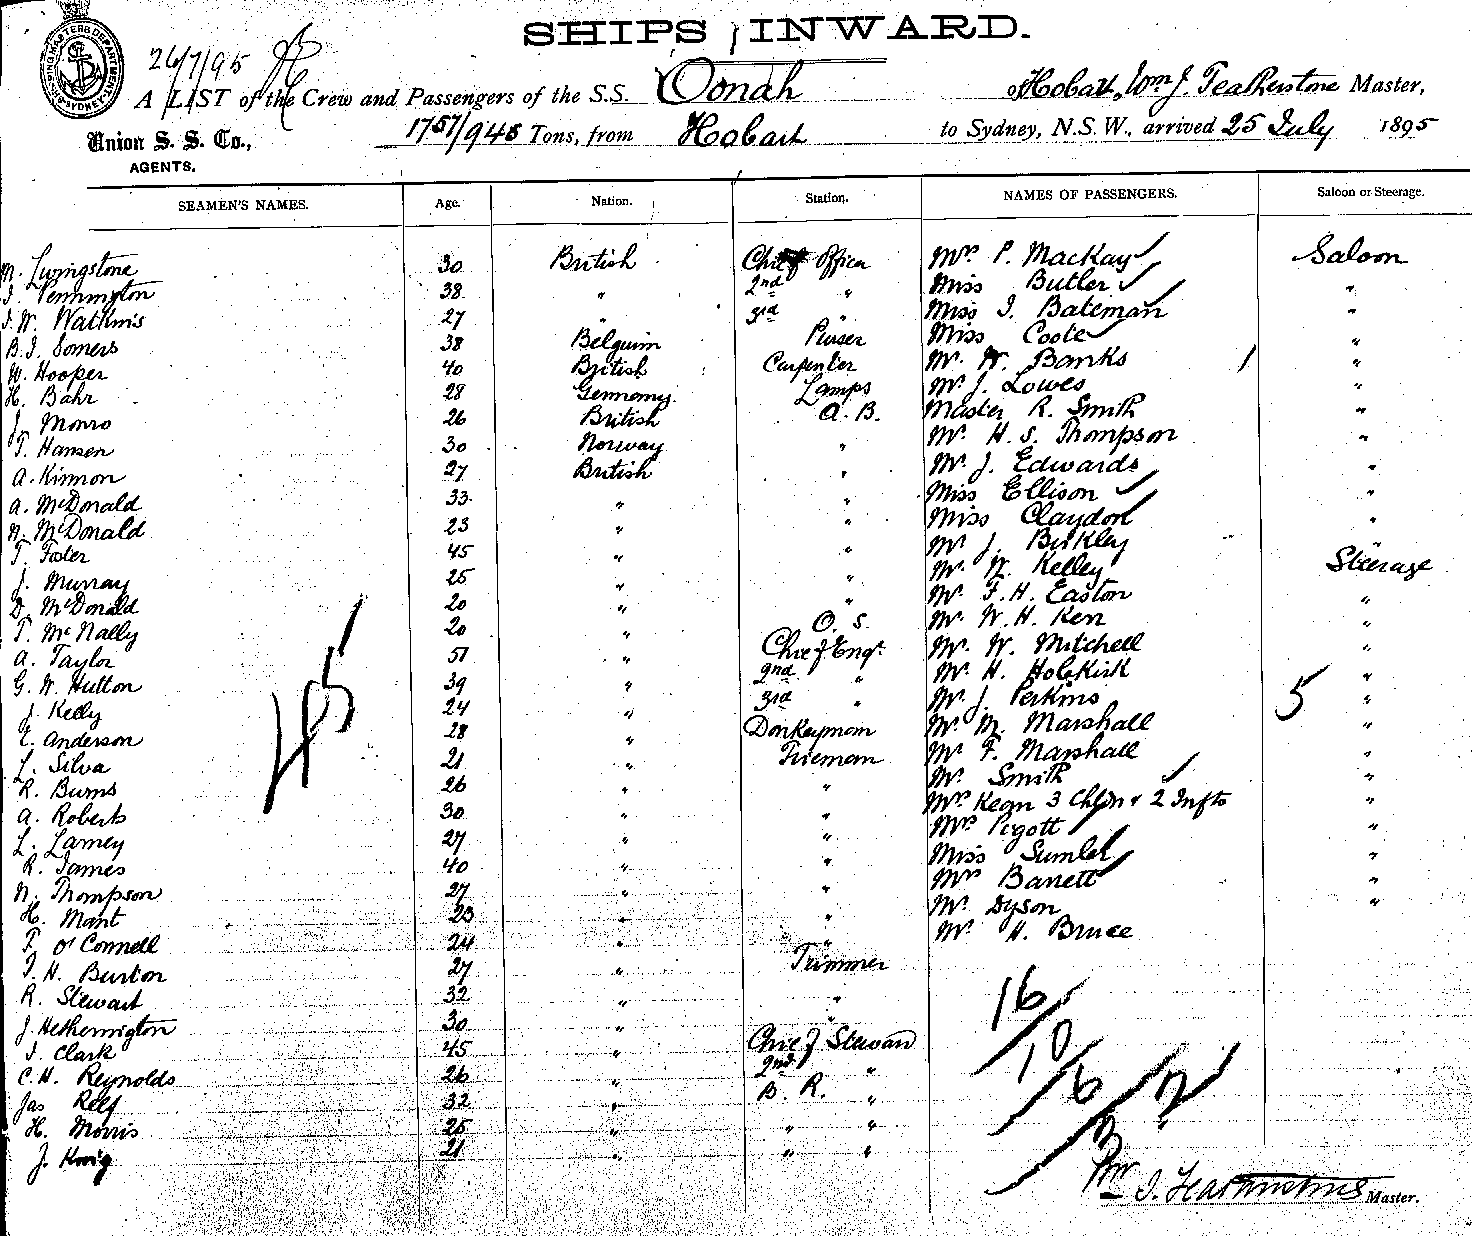 SHIPS INWARD.
26/7/95
A LIST of the Crew and Passengers of the S.S. Oonah of Hobart, Wm J. Featherstone Master,
Union S. S. Co., 1757/945 Tons, from Hobart to Sydney, N.S.W., arrived 25 July 1895
AGENTS.
SEAMEN'S NAMES. Age. Nation. Station. NAMES OF PASSENGERS. Saloon or Steerage.
M. Livingstone 30 British Chief Officer Mrs P. Mackay Saloon
J. Pennington 38 " 2nd " Miss Butler "
J. W. Watkins 27 " 3rd " Miss J. Bateman "
B. J. Somers 38 Belguim Purser Miss Coote "
W. Hooper 40 British Carpenter Mr. W. Banks "
H. Bahr 28 Germany Lamps Mr J. Lowes "
J. Monro 26 British A. B. Master R. Smith "
T. Hansen 30 Norway " Mr. H. S. Thompson "
A. Kinnon 27 British " Mr. J. Edwards "
A. McDonald 33 " " Miss Ellison "
N. McDonald 23 " " Miss Claydon "
T. Foster 45 " " Mr J. Birkley "
J. Murray 25 " " Mr. W. Kelley Steerage
D. McDonald 20 " " Mr. F. H. Easton "
T. McNally 20 " O. S. Mr. W. H. Kerr "
A. Taylor 51 " Chief Engr. Mr. W. Mitchell "
G. W. Hutton 39 " 2nd " Mr. H. Hobkirk "
J. Kelly 24 " 3rd " Mr. J. Perkins "
E. Anderson 28 " Donkeyman Mr. M. Marshall "
L. Silva 21 " Fireman Mr F. Marshall "
R. Burns 26 " " Mr. Smith "
A. Roberts 30 " " Mrs Kean 3 Chldn & 2 Infts "
L. Lamey 27 " " Mrs Pigott "
R. James 40 " " Miss Sumler "
N. Thompson 27 " " Mrs Barrett "
H. Mant 23 " " Mr. Dyson "
F. O'Connell 24 " " Mr. H. Bruce
J. H. Burton 27 " Trimmer
R. Stewart 32 " "
J. Hetherington 30 " "
J. Clark 45 " Chief Stewart
C. H. Reynolds 26 " 2nd "
Jas Relf 32 " B. R. "
H. Morris 25 " " "
J. King 21 " " "
45
5
16/10/6/2
Wm J. Featherstone Master.